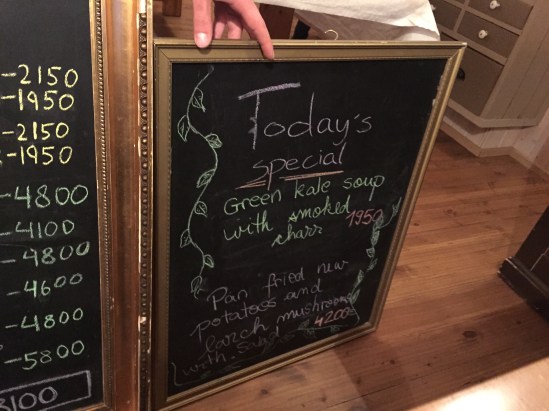 -2150
-1950
-2150
-1950
-4800
-4100
-4800
-4600
-4800
-5800
8100
Today's
special
Green kale soup
with smoked
charr 1950
Pan fried new
potatoes and
larch mushrooms
with 4200